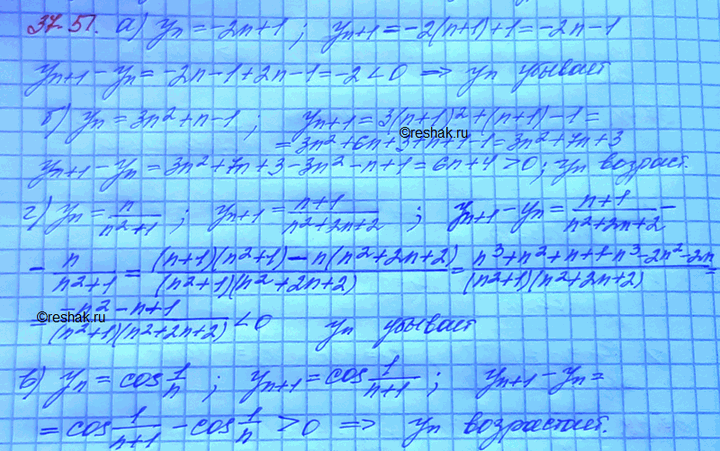 37.51. а) yₙ = -2n+1 ; yₙ₊₁ = -2(n+1)+1 = -2n-1
yₙ₊₁ - yₙ = -2n-1+2n-1 = -2 < 0 ⇒ yₙ убывает
б) yₙ = 3n²+n-1 ; yₙ₊₁ = 3(n+1)²+(n+1)-1 =
©reshak.ru
= 3n²+6n+3+n+1-1 = 3n²+7n+3
yₙ₊₁ - yₙ = 3n²+7n+3-3n²-n+1 = 6n+4 > 0 ; yₙ возраст.
г) yₙ = n/(n²+1) ; yₙ₊₁ = (n+1)/(n²+2n+2) ; yₙ₊₁ - yₙ = (n+1)/(n²+2n+2) -
- n/(n²+1) = ((n+1)(n²+1) - n(n²+2n+2))/((n²+1)(n²+2n+2)) = (n³+n²+n+1-n³-2n²-2n)/((n²+1)(n²+2n+2)) =
©reshak.ru
= (-n²-n+1)/((n²+1)(n²+2n+2)) < 0 yₙ убывает
в) yₙ = cos 1/n ; yₙ₊₁ = cos 1/(n+1) ; yₙ₊₁ - yₙ =
= cos 1/(n+1) - cos 1/n > 0 ⇒ yₙ возрастает.